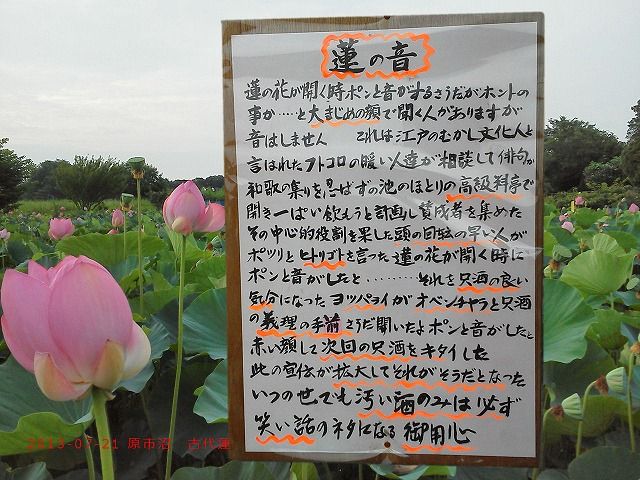 蓮の音
蓮の花が開く時ポンと音がするさうだがホントの
事か‥‥と大まじめの顔で聞く人がありますが
音はしません これは江戸のむかし文化人と
言はれたフトコロの暖い人達が相談して俳句や
和歌の集りを忍ばずの池のほとりの高級料亭で
開き一ぱい飲もうと計画し賛成者を集めた
その中心的役割を果した頭の回転の早い人が
ポツリとヒトリゴトを言った 蓮の花が開く時に
ポンと音がしたと‥‥‥‥ それを只酒の良い
気分になったヨッパライがオベンチャラと只酒
の義理の手前さうだ聞いたよポンと音がしたと
赤い顔して次回の只酒をキタイした
此の宣伝が拡大してそれがそうだとなった
いつの世でも汚い酒のみは必ず
笑い話のネタになる 御用心
2013-07-21 原市沼 古代蓮